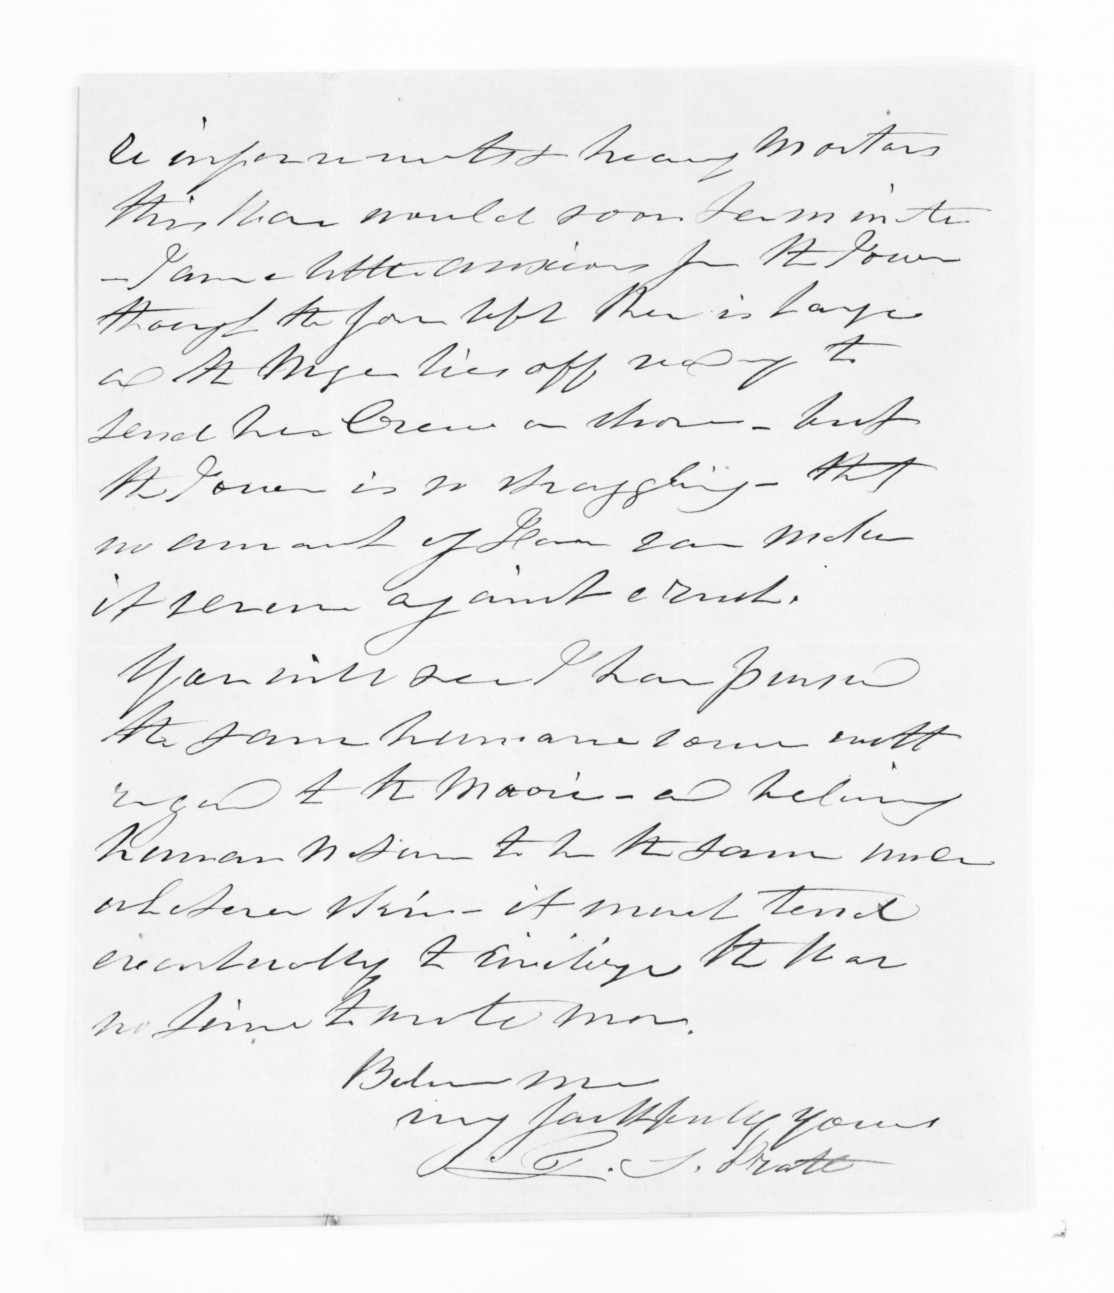 reinforcements & heavy Mortars
this War would soon terminate
- I am a little anxious for the Town
though the force left there is large
and the Niger lies off ready to
send her Crew on shore - but
the Town is so straggling - that
no amount of Force can make
it secure against a rush.
You will see I have pursued
the same humane course with
regard to the Maoris - and believing
human nature to be the same under
whatever skin - it must tend
eventually to civilize the War
no time to write more.
Believe me
very faithfully yours
T. S. Pratt